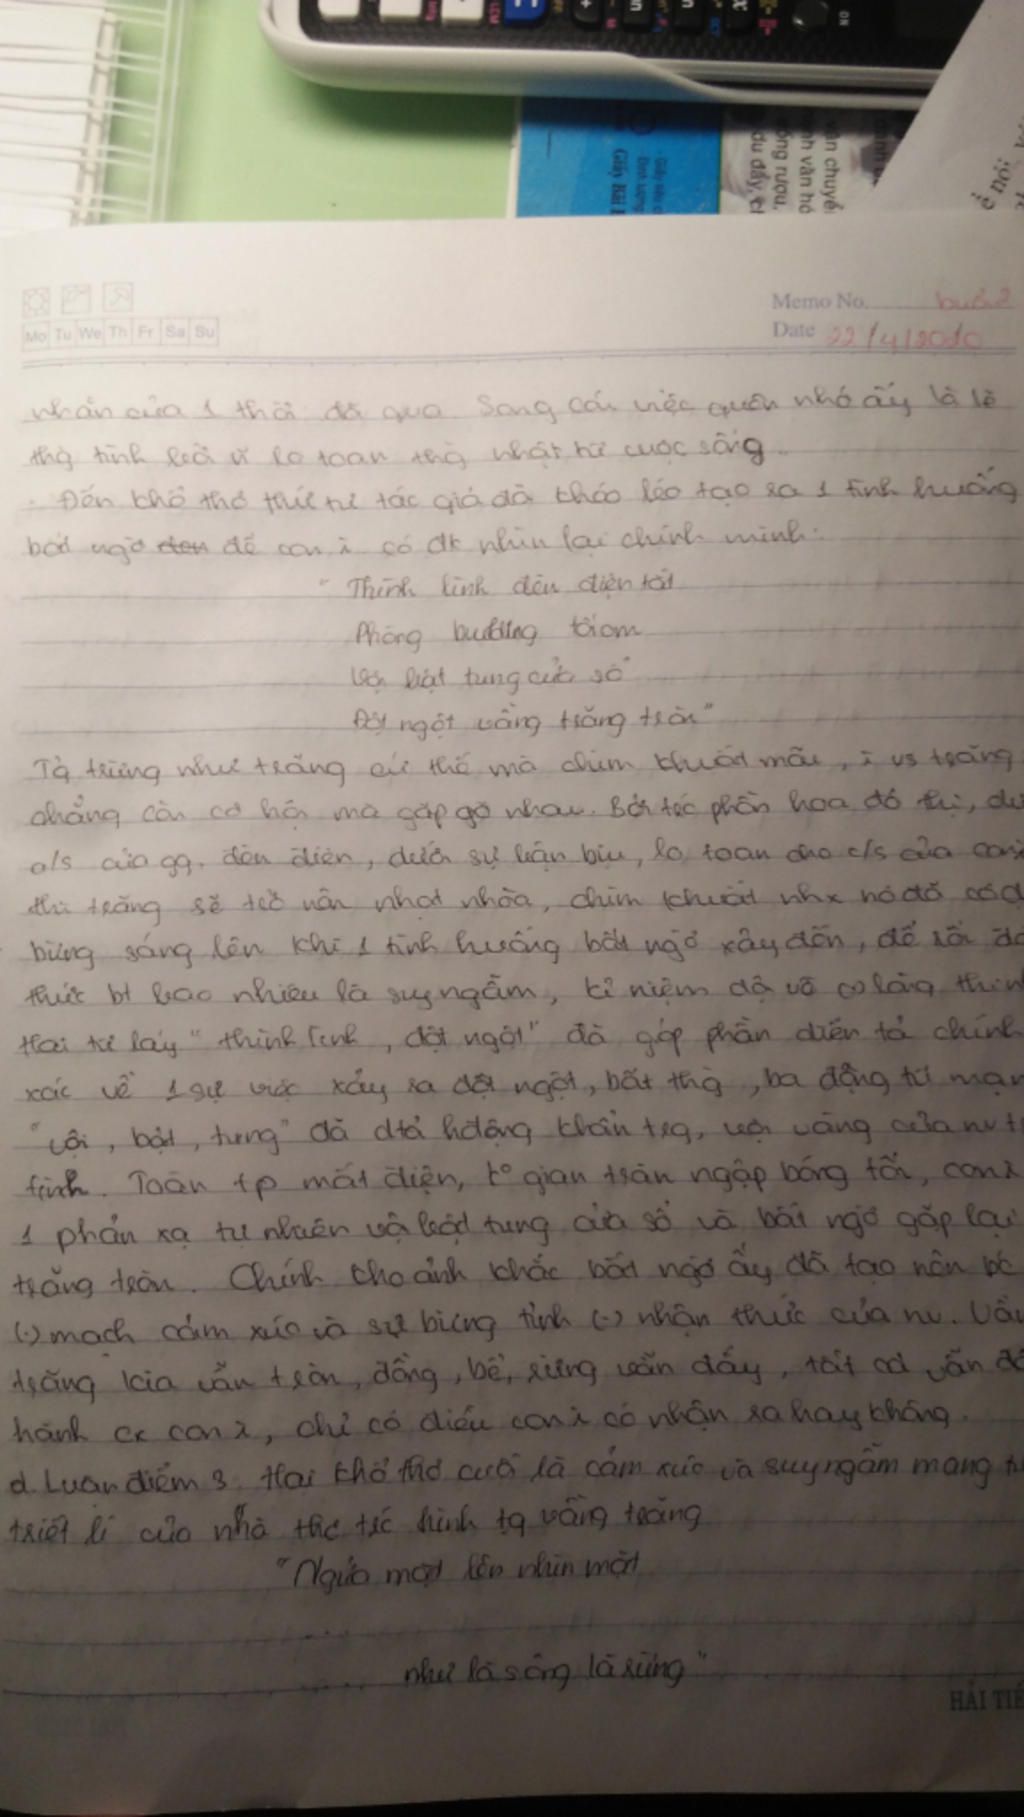 Mo Tu We Th Fr Sa Su
Memo No. buổi 2
Date 22/4/2020
nhân của 1 thời đã qua. Song cái việc quên nhớ ấy là lẽ
thg tình bởi vì lo toan thg nhật từ cuộc sống.
- Đến khổ thơ thứ tư tác giả đã khéo léo tạo ra 1 tình huống
bất ngờ để con λ có đk nhìn lại chính mình:
"Thình lình đèn điện tắt
Phòng buđing tối om
Vội bật tung cửa sổ
Đột ngột vầng trăng tròn"
Tg trừng như trăng cứ thế mà chìm khuất mãi, λ vs trăng
chẳng còn cơ hội mà gặp gỡ nhau. Bởi trc phồn hoa đô thị,
a/s của gg, đèn điện, dưới sự bận bịu, lo toan cho c/s của con λ
thì trăng sẽ trở nên nhạt nhòa, chìm khuất nhx nó đã
bừng sáng lên khi 1 tình huống bất ngờ xảy đến, để rồi
thức bt bao nhiêu là suy ngẫm, kỉ niệm dội về
Hai từ láy "thình lình, đột ngột" đã góp phần diễn tả chính
xác về 1 sự việc xảy ra đột ngột, bất thg, ba động từ
"vội, bật, tung" đã dtả hđộng khẩn trg, vội vàng của nv
tình. Toàn tp mất điện, k° gian tràn ngập bóng tối, con λ
1 phản xạ tự nhiên vội bật tung cửa sổ và bất ngờ gặp lại
trăng tròn. Chính khoảnh khắc bất ngờ ấy đã tạo nên
(.) mạch cảm xúc và sự bừng tỉnh (.) nhận thức của nv.
trăng kia vẫn tròn, đồng, bể, rừng vẫn đấy, tất cả vẫn
hành cx con λ, chỉ có điều con λ có nhận ra hay không.
d. Luận điểm 3. Hai khổ thơ cuối là cảm xúc và suy ngẫm mang
triết lí của nhà thơ trc hình tg vầng trăng
"Ngửa mặt lên nhìn mặt
...
... như là sông là rừng"
HẢI TIẾ